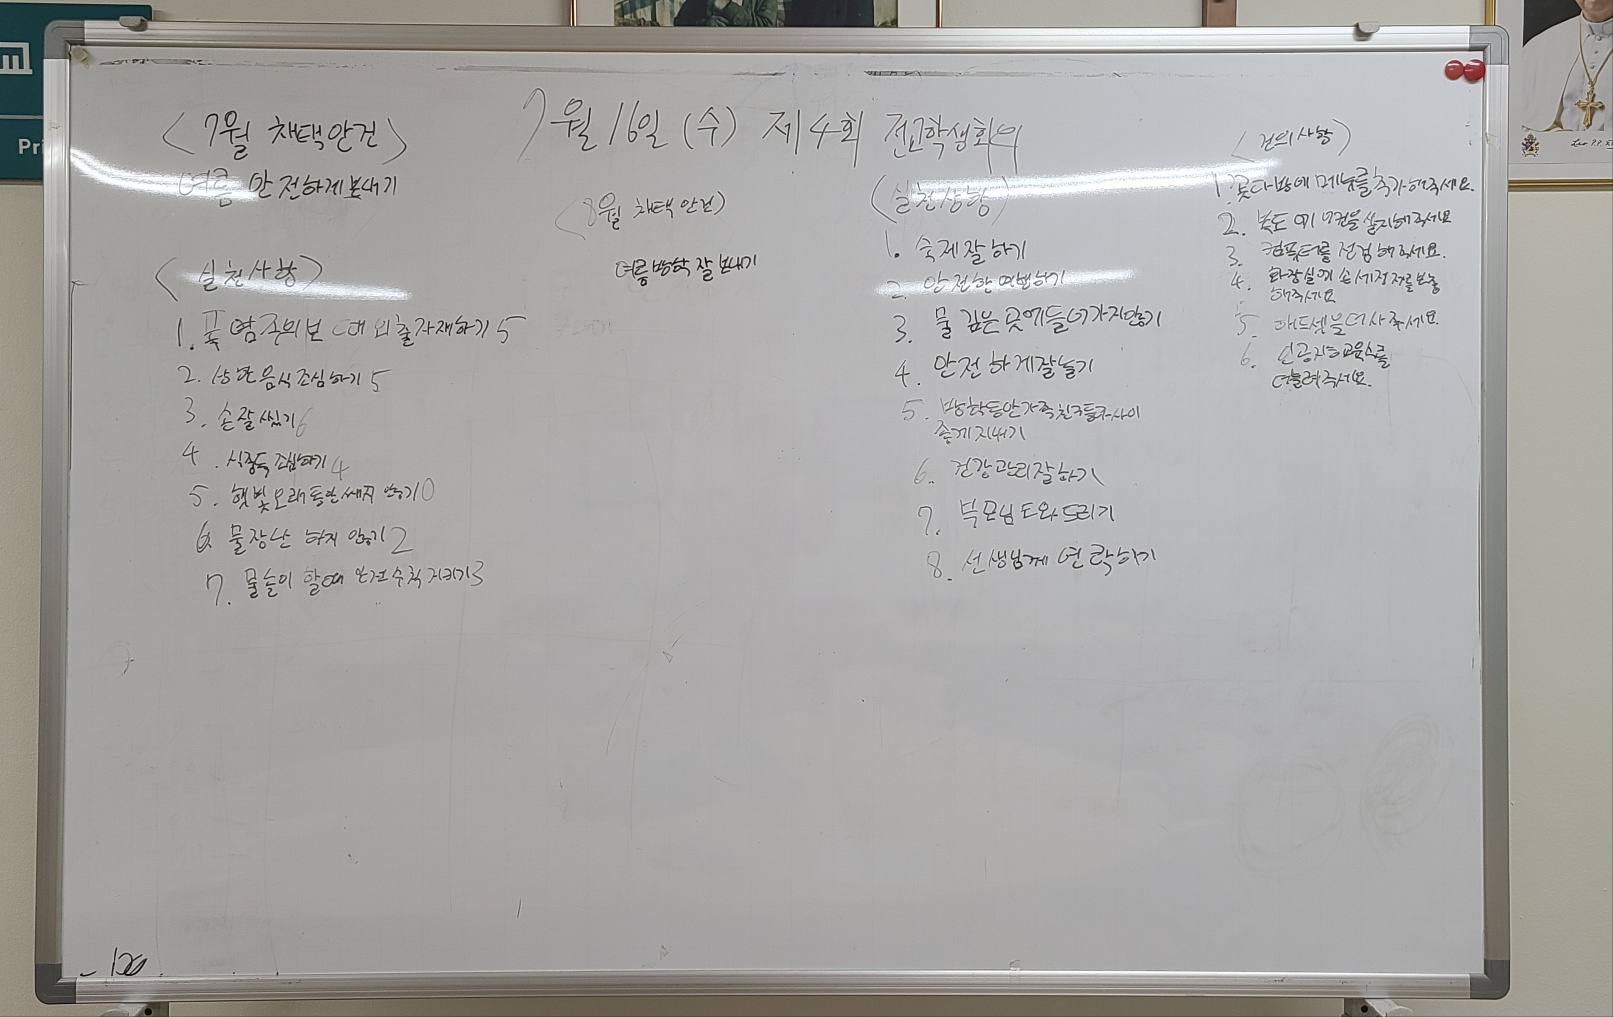 7월 16일 (수) 제4회 전교학생회의
<7월 채택안건>
여름 안전하게 보내기
<실천사항>
1. 폭염주의보 때 외출자재하기 5
2. 상한음식 조심하기 5
3. 손잘씻기 6
4. 식중독 조심하기 4
5. 햇빛 오래 동안 쐐지 않기 0
6. 물장난 하지 않기 2
7. 물놀이 할때 안전수칙 지키기 3
<8월 채택안건>
여름방학 잘 보내기
<실천상항>
1. 숙제잘하기
2. 안전한여행하기
3. 물 깊은 곳에 들어가지않기
4. 안전하게잘놀기
5. 방학동안가족친구들과사이
좋게지내기
6. 건강관리잘하기
7. 부모님 도와드리기
8. 선생님께 연락하기
<건의사항>
1. 꽃다방에 메뉴를 추가해주세요.
2. 복도에 에어컨을 설치해주세요
3. 컴퓨터를 점검해주세요.
4. 화장실에 손세정제를 보충
해주세요
5. 헤드셋을더사주세요.
6. 인공지능교육
더늘려주세요.
Pri